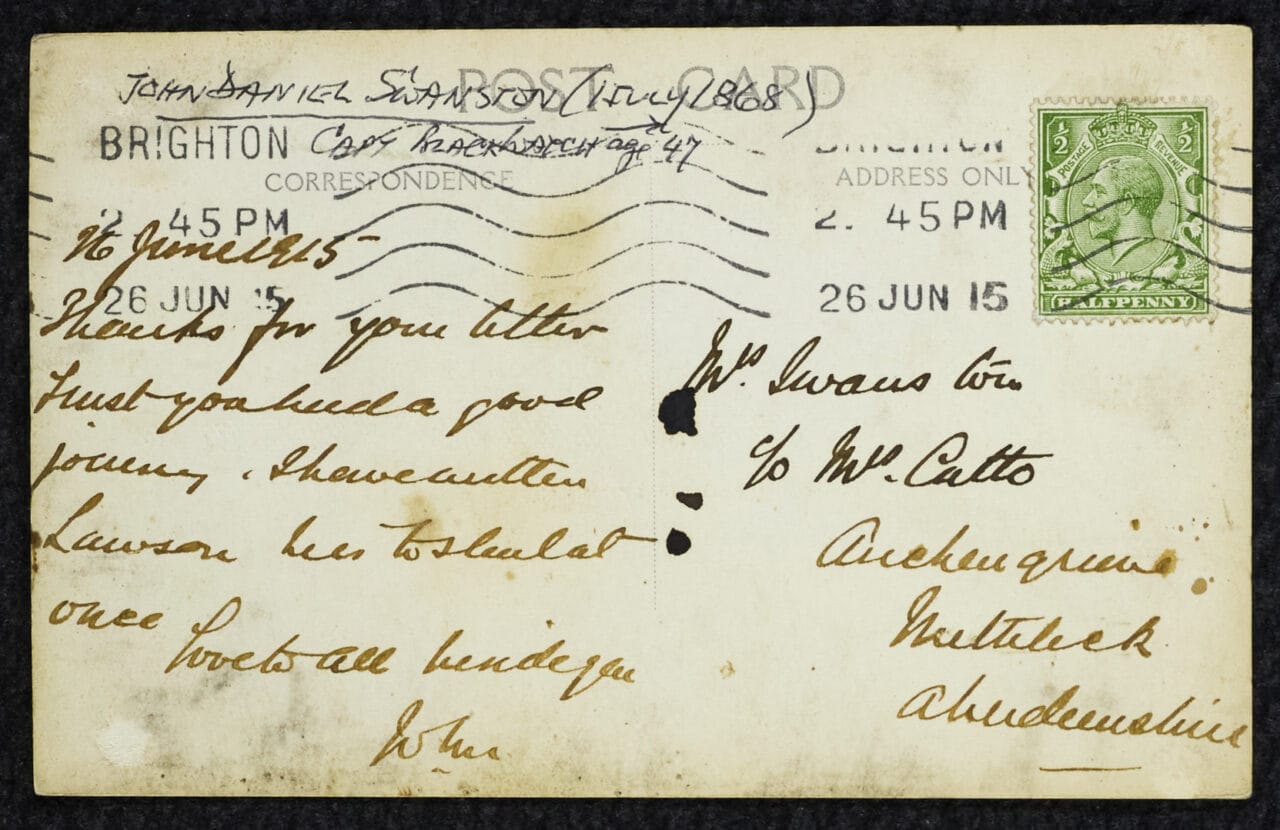 POST CARD
JOHN DANIEL SWANSTON (1 JULY 1868)
CAPT BLACKWATCH age 47
BRIGHTON
CORRESPONDENCE
2. 45 PM
26 JUN 15
26 June 1915
Thanks for your letter
Trust you had a good
journey. I have written
Lawson
once
Love to all
John
BRIGHTON
ADDRESS ONLY
2. 45 PM
26 JUN 15
½ ½
POSTAGE REVENUE
HALFPENNY
Mrs. Swanston
c/o Mrs. Catto
Methlick
Aberdeenshire